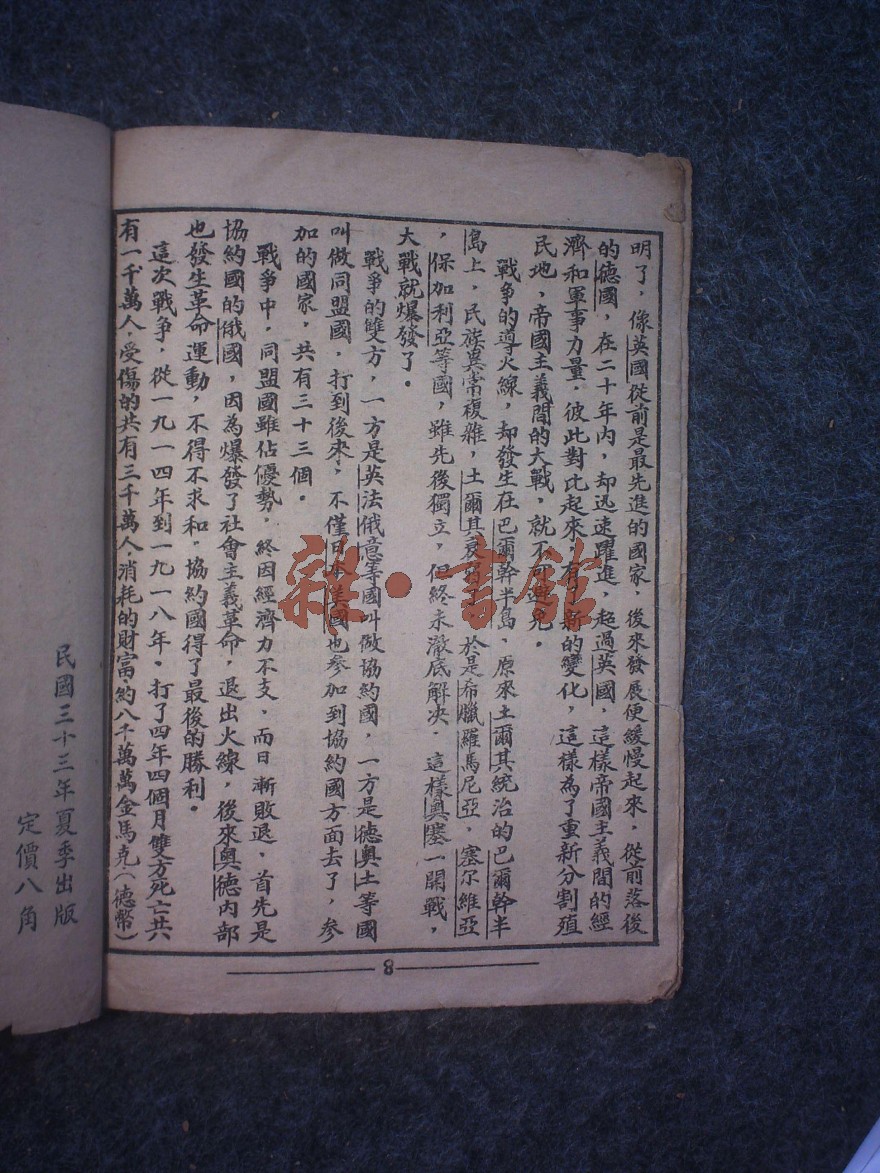 明了，像英國從前是最先進的國家，後來發展便緩慢起來，從前落後
的德國，在二十年内，却迅速躍進，超過英國，這樣帝國主義間的經
濟和軍事力量，彼此對比起來，有了新的變化，這樣為了重新分割殖
民地，帝國主義間的大戰，就不可避免。
戰爭的導火線，却發生在巴爾幹半島，原來土爾其統治的巴爾幹半
島上，民族異常複雜，土爾其衰弱了，於是希臘羅馬尼亞，塞尔維亞
，保加利亞等國，雖先後獨立，但終未澈底解决，這樣奥塞一開戰，
大戰就爆發了。
戰爭的雙方，一方是英法俄意等國叫做協約國，一方是德奥土等國
叫做同盟國，打到後來，不僅日本美國也參加到協約國方面去了，參
加的國家，共有三十三個。
戰爭中，同盟國雖佔優勢，終因經濟力不支，而日漸敗退，首先是
協約國的俄國，因為爆發了社會主義革命，退出火線，後來奥德内部
也發生革命運動，不得不求和，協約國得了最後的勝利。
這次戰爭，從一九一四年到一九一八年，打了四年四個月雙方死亡共
有一千萬人，受傷的共有三千萬人，消耗的財富，約八千萬萬金馬克（德幣）
8
民國三十三年夏季出版
定價八角
雜·書館